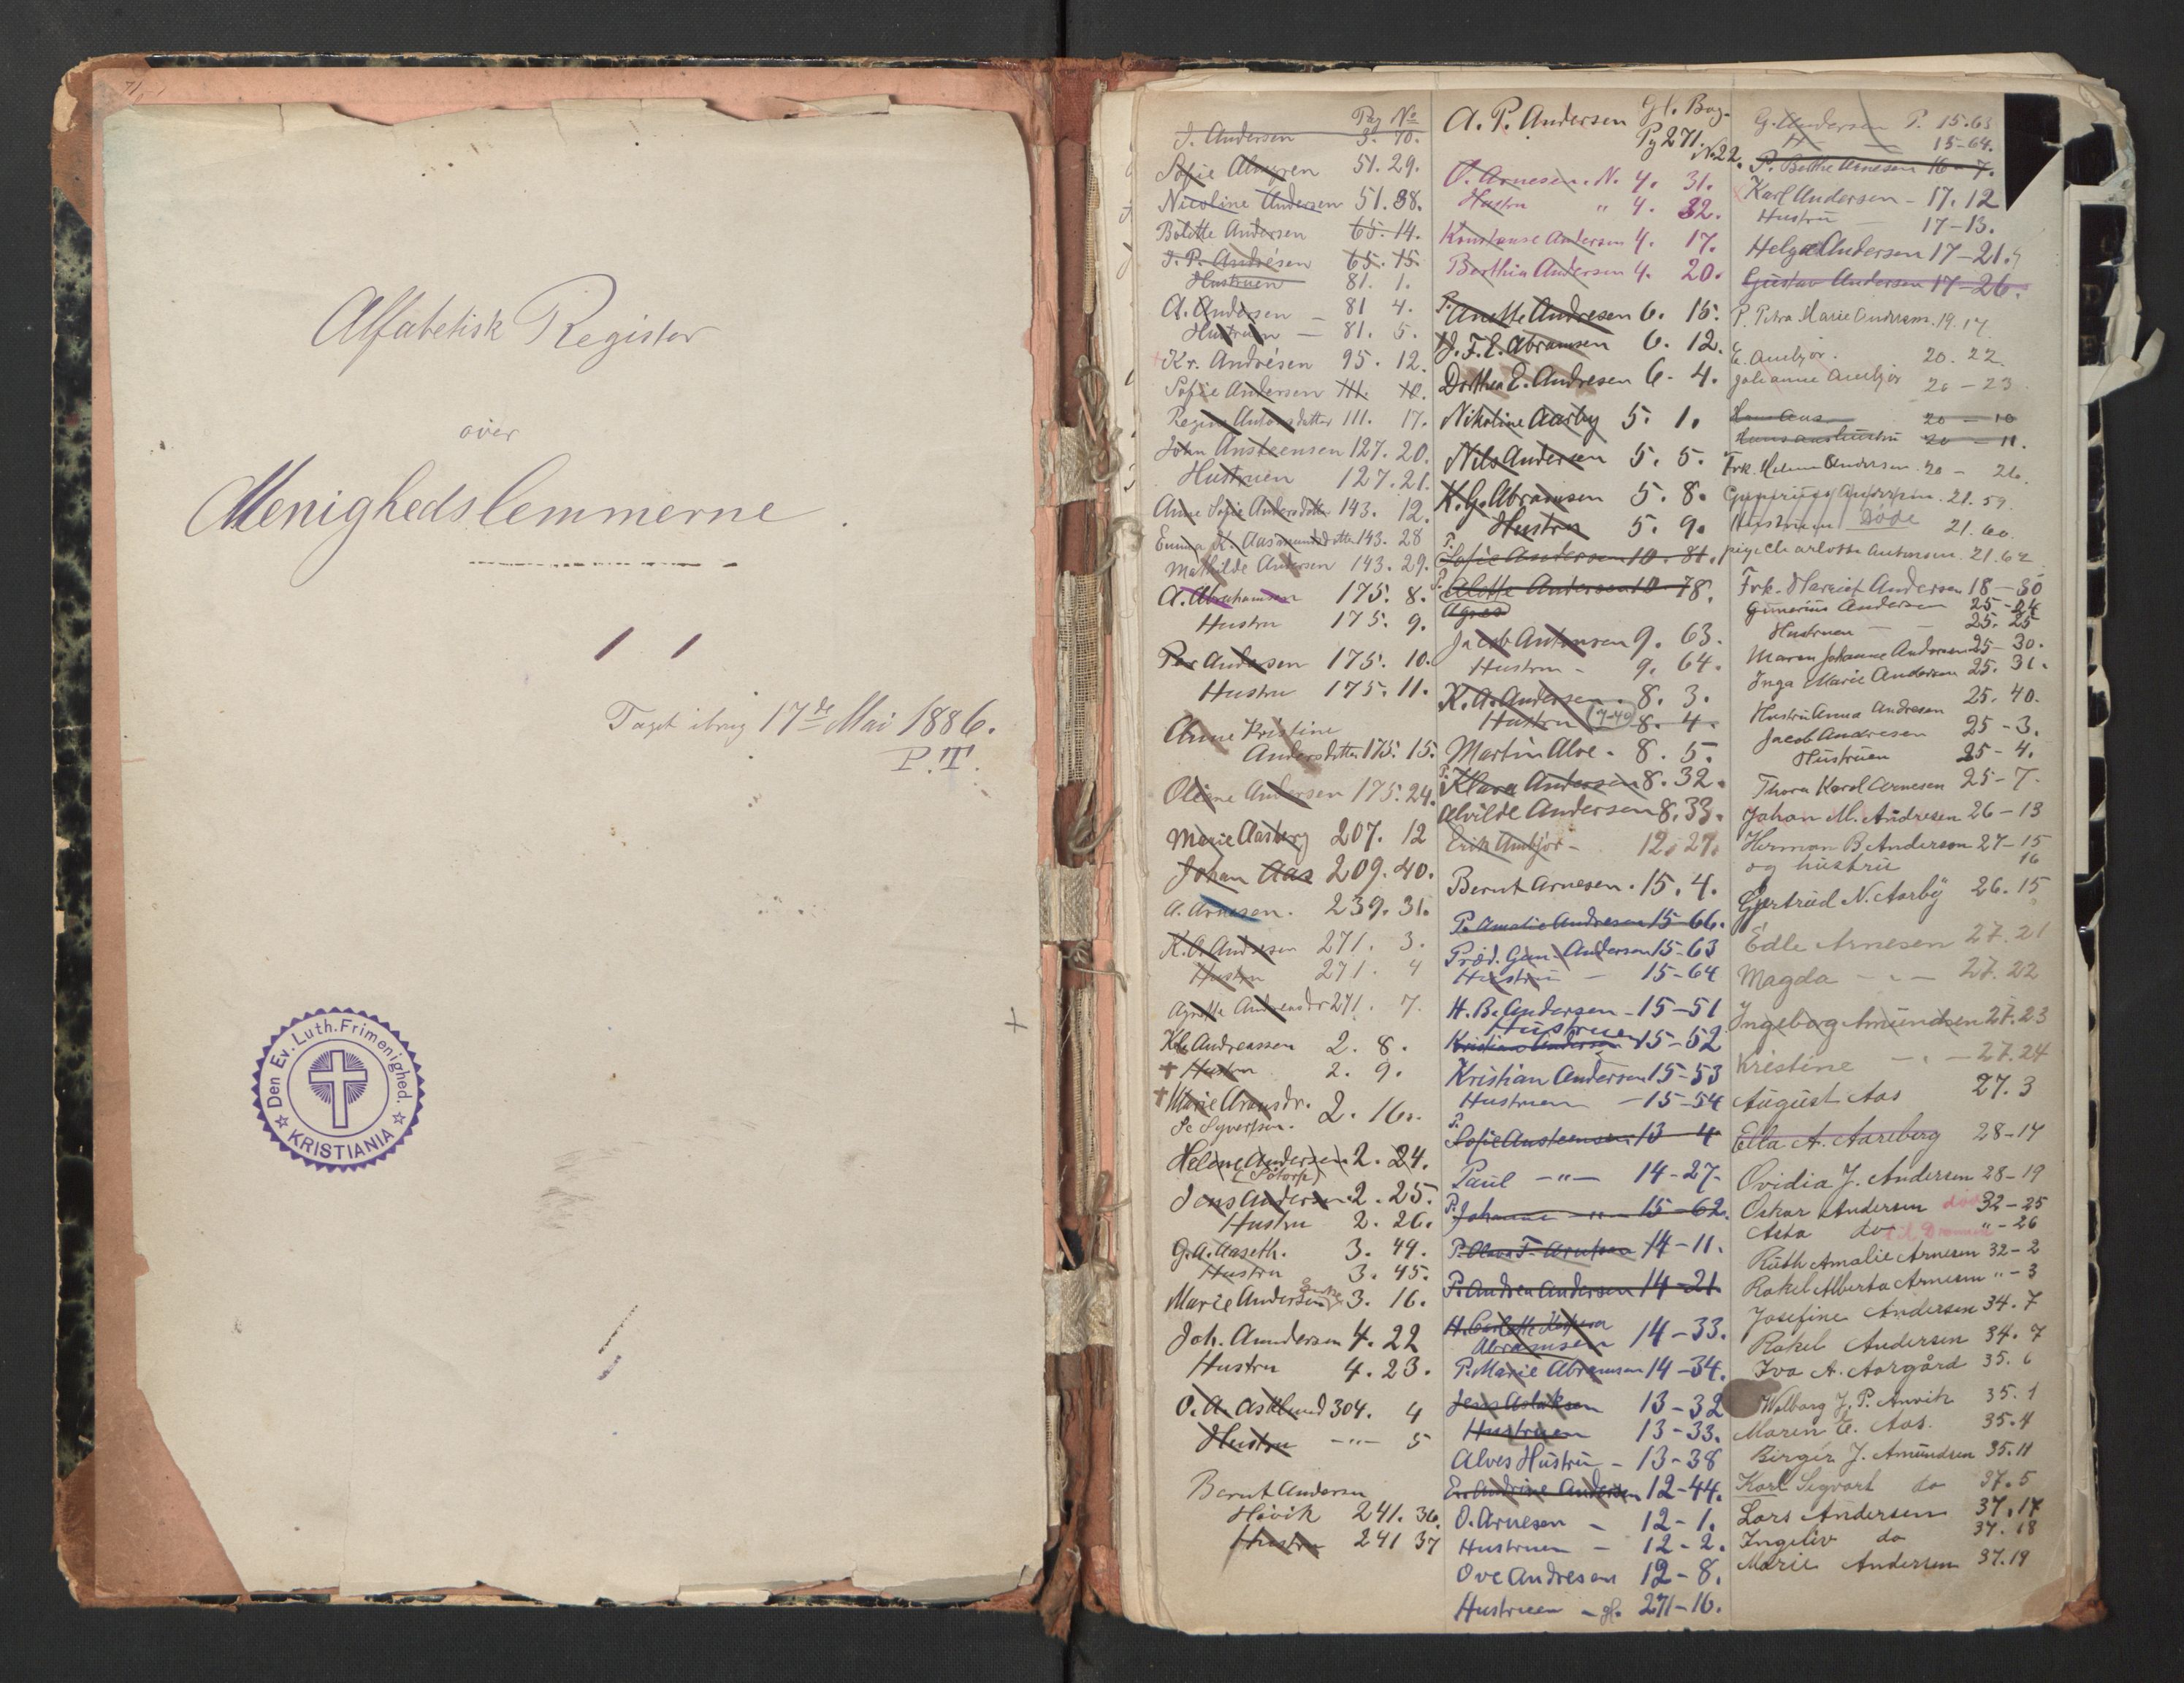 Alfabetisk Register
over
Menighedslemmerne.
Taget ibrug 17de Mai 1886.
P.T.
Den Ev. Luth. Frimenighed.
KRISTIANIA
Pag No
J. Andersen 3. 70.
Sofie Almgren 51. 29.
Nicoline Andersen 51. 38.
Bolette Andersen 65. 14.
J. P. Andrésen 65. 15.
Hustruen 81. 1.
A. Andersen 81 4.
Hustruen — 81. 5.
Kr. Andrésen 95. 12.
Sofie Andersen 111. 10.
Regine Antonsdatter 111. 17.
John Ansteensen 127. 20.
Hustruen 127. 21.
Anne Sofie Andersdatter 143. 12.
Emma K. Aasmundsdatter 143. 28
Mathilde Andersen 143. 29.
A. Abrahamsen 175. 8.
Hustru 175. 9.
Per Andersen 175. 10.
Hustru 175. 11.
Anne Kristine
Andersdatter 175. 15.
Oline Andersen 175. 24.
Marie Aasberg 207. 12
Johan Aas 209. 40.
A. Arnesen. 239. 31.
K. A. Andresen 271. 3.
Hustru 271. 4
Agnethe Andreasdr 271. 7.
Kl. Andreassen 2. 8.
+ Hustru 2. 9.
+ Marie Aronsdr. 2. 16.
Se Syversen.
Helene Andersen 2. 24.
Jens Andersen 2. 25.
Hustru 2. 26.
G. A. Aaseth. 3. 44.
Hustru 3. 45.
Marie Andersen 3. 16.
Joh. Amundersen 4. 22
Hustru 4. 23.
O. A. Asklund 304. 4
Hustru —"— 5
Bernt Andersen
Høvik 241. 36.
Hustru 241 37
A. P. Andersen Gl. Bog.
Pg 271.
N. 22.
O. Arnesen. N. 4. 31.
Hustru " 4. 32.
Konstanse Andersen 4. 17.
Berthia Andersen 4. 20.
P. Anette Andresen 6. 15.
J. F. E. Abramsen 6. 12.
Dorthea E. Andresen 6. 4.
Nikoline Aarby 5. 1.
Nils Andersen 5. 5.
K. G. Abramsen 5. 8.
Hustru 5. 9.
P. Sofie Andersen 10. 81.
P. Alette Andersen 10 78.
Agnes
Jacob Antonsen 9. 63.
Hustru - 9. 64.
K. A. Andersen. 8. 3.
Hustru 8. 4.
Martin Alve - 8. 5.
P. Klara Andersen 8. 32.
Alvilde Andersen 8. 33.
Erik Ambjør - 12. 27.
Bernt Arnesen. 15. 4.
P. Amalie Andresen 15-66.
Præd. Gun. Andersen 15-63
Hustru — 15-64
H. B. Andersen - 15-51
Hustruen
Kristian Andersen 15-52
Kristian Andersen 15-53
Hustruen — 15-54
P. Sofie Ansteensen 13 4
Paul —"— 14-27.
P. Johanne —"— 15-62.
P. Olava F. Arntsen 14-11.
P. Andrea Andersen 14-21.
Abramsen 14-33.
P. Marie Abramsen 14-34.
Jens Aslaksen 13-32
Hustruen 13-33.
Alves Hustru - 13-38
Andrine Andersen 12-44.
O. Arnesen - 12-1.
Hustruen - 12-2.
Ove Andresen 12-8.
Hustruen - gl. 271-16.
G. Andersen P. 15.63
H — 15-64.
P. Berthe Arnesen 16-7.
Karl Andersen - 17. 12
Hustru 17-13.
Helga Andersen 17-21.
Gustav Andersen 17-26.
P. Petra Marie Andersen. 19. 17.
E. Ambjør. 20. 22.
Johanne Ambjør 20-23.
Hans Aas 20-10
Hans Aas hustru 20-11.
Frk. Helene Andersen 20- 26.
Andersen. 21. 59.
Hustruen Døde 21. 60.
pige Charlotte Antonsen. 21. 62
Frk. Harriet Andersen 18-30
Gunerius Andersen 25-24
Hustruen — 25. 25
Maren Johanne Andersen 25-30.
Inga Marie Andersen 25. 31.
Hustru Anna Andresen 25. 40.
Jacob Andresen 25-3.
Hustruen 25-4.
Thora Karol. Arnesen 25-7.
Johan M. Andresen 26-13
Herman B. Anderson 27-15
og hustru 16
Gjertrud N. Aarby 26. 15
Edle Arnesen 27. 21
Magda —"— 27. 22
Ingeborg Amundsen 27. 23
Kristine —"— 27. 24
August Aas 27. 3
Ella A. Aareberg 28-17
Ovidia J. Andersen 28-19
Oskar Andersen død 32-25
Asta do "-26
Ruth Amalie Arnesen 32-2
Rakel Alberta Arnesen "-3
Josefine Andersen 34. 7
Rakel Andersen 34. 7
Iva A. Aargård 35. 6
Walborg J. P. Anvik 35. 1
Maren E. Aas. 35. 4
Birger J. Amundsen 35. 11
Karl Sigvart do 37. 5
Lars Andersen 37. 17
Ingeliv do 37. 18
Marie Andersen 37. 19